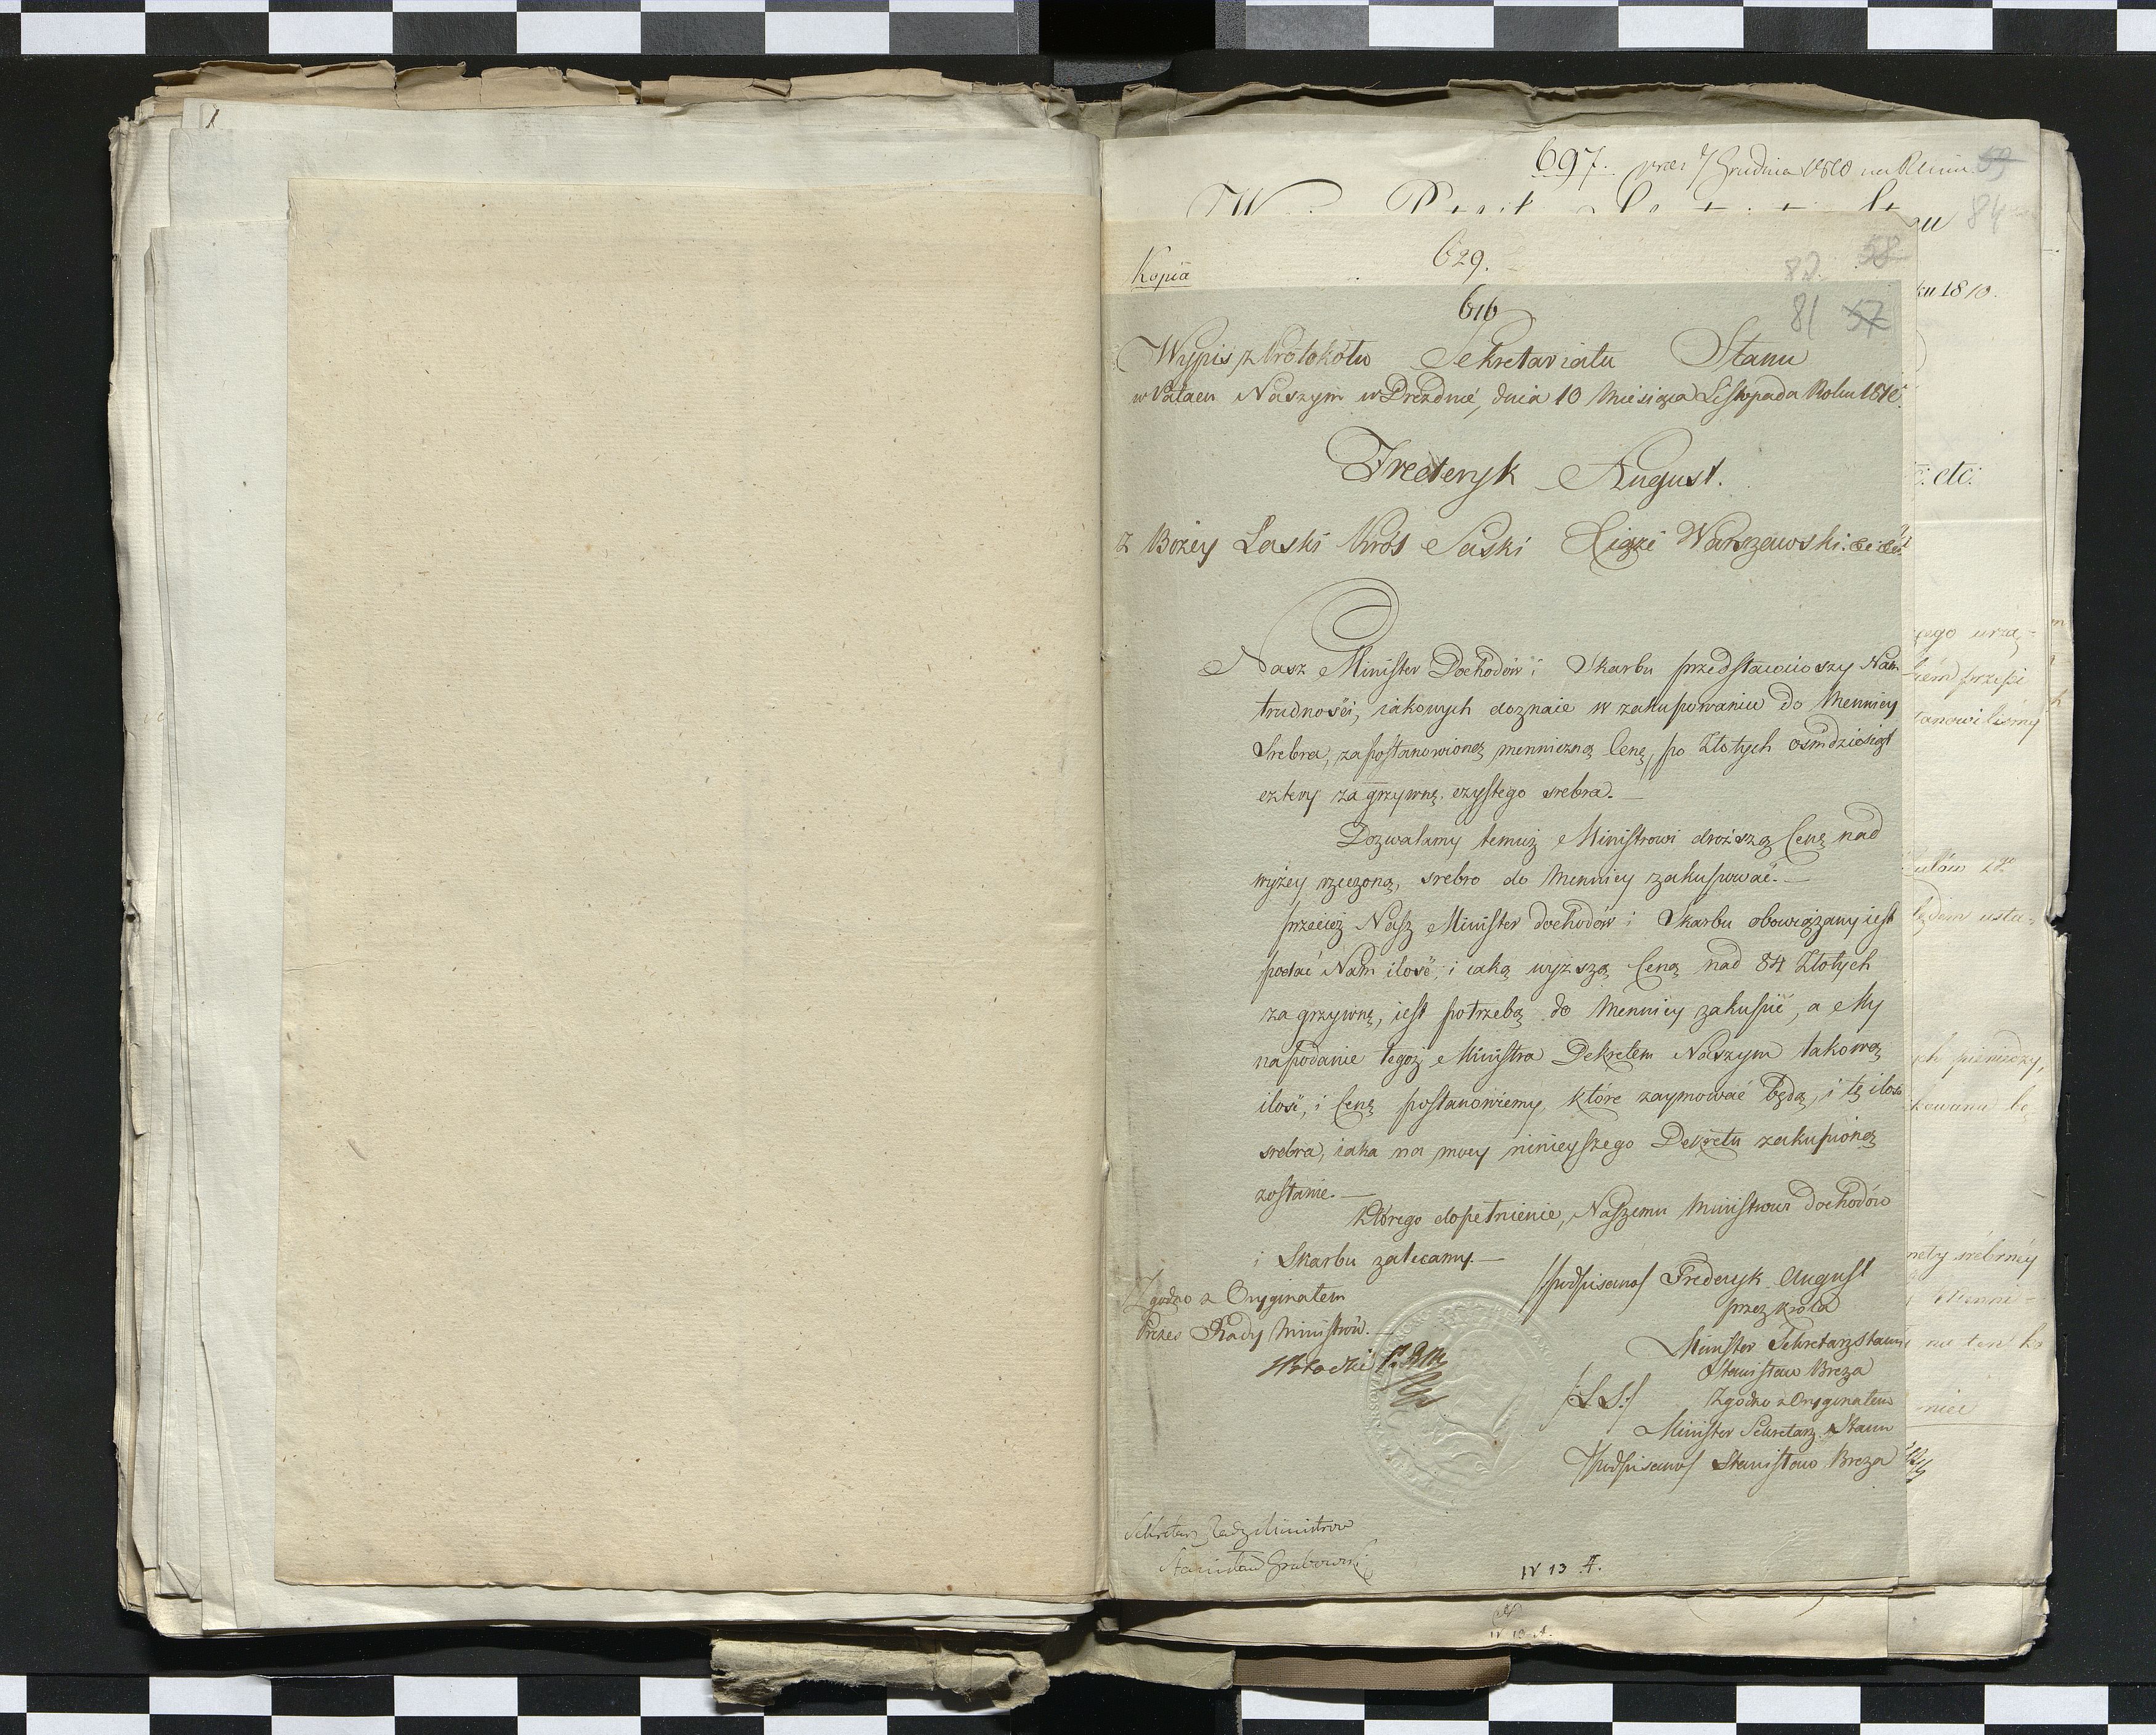 697. 7 Grudnia 1810
59
84
Kopia
629.
82. 58
ku 1810.
616
81 57
Wypis z Protokołu Sekretariatu Stanu
w Pałacu Naszym w Dreźnie, dnia 10 Miesiąca Listopada Roku 1810.
Frederyk August.
z Bożey Łaski Król Saski Xiąże Warszawski. &c &c
etc:
Nasz Minister Dochodów i Skarbu przedstawiwszy Nam
trudności, iakowych doznaie w zakupowaniu do Mennicy
Srebra, za postanowioną menniczną Cenę, po Złotych ośmdziesiąt
cztery za grzywnę czystego srebra.—
Dozwalamy temuż Ministrowi droższą Cenę nad
wyżey rzeczoną, srebro do Mennicy zakupować.—
przecież Nasz Minister dochodów i Skarbu obowiązany iest
podać Nam ilość, i iaką wyższą Ceną nad 84 Złotych
za grzywnę, iest potrzebą do Mennicy zakupić, a My
na podanie tegoż Ministra Dekretem Naszym takową
ilość, i Cenę postanowiemy, które zaymować będą, i tę ilość
srebra, iaka na mocy ninieyszego Dekretu zakupioną
zostanie.—
Którego dopełnienie, Naszemu Ministrowi Dochodów
i Skarbu zalecamy.—
/podpisano/ Frederyk August
przez Króla
Minister Sekretarz Stanu
Stanisław Breza
/:L.S:/ Zgodno z Oryginałem
Minister Sekretarz Stanu
/podpisano/ Stanisław Breza
Zgodno z Oryginałem
Prezes Rady Ministrów.—
Sekretarz Rady Ministrow
Stanisław Grabowski
N 13 A.
N 13 A.